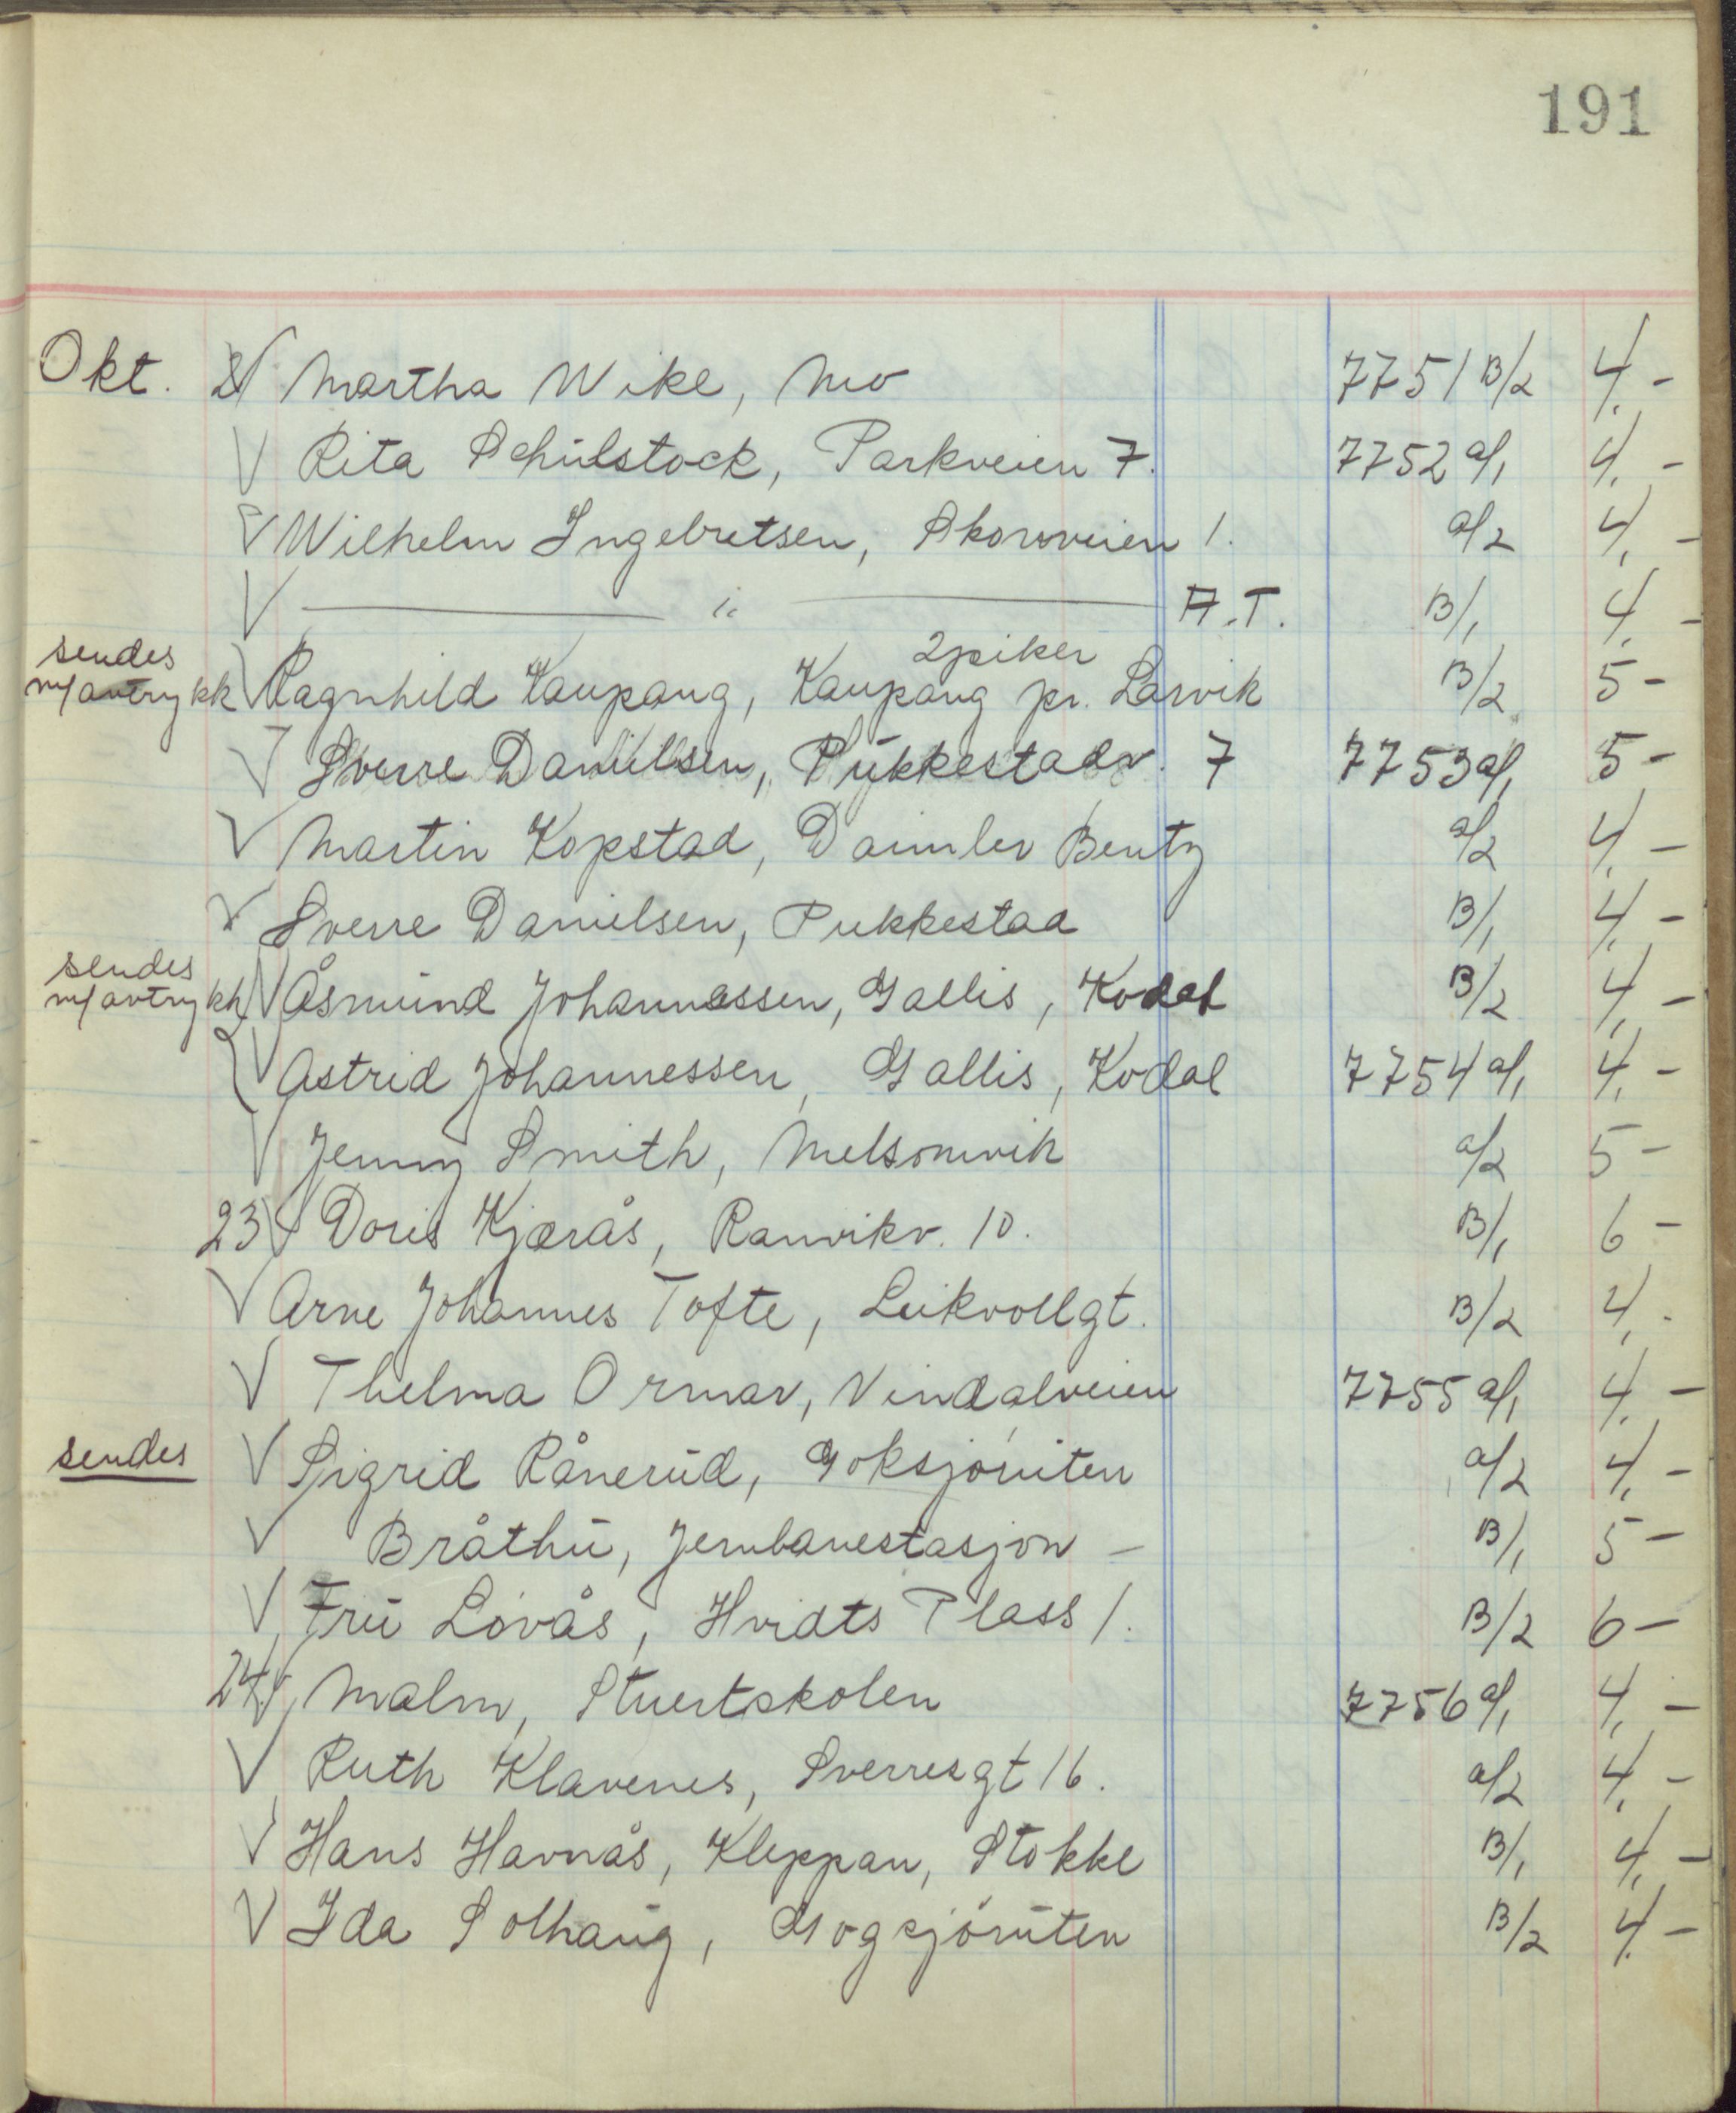 191
Okt. Martha Wike, Mo 7751 B/2 4,-
Rita Schulstock, Parkveien 7. 7752 a/1 4,-
Wilhelm Ingebretsen, Skorvveien 1. a/2 4,-
— " — A.T. B/1 4,-
sendes 2 piker
m/avtrykk Ragnhild Kaupang, Kaupang pr. Larvik B/2 5-
Sverre Danielsen, Pukkestadv. 7 7753 a/1 5-
Martin Kopstad, Daimler Bentz a/2 4,-
Sverre Danielsen, Pukkestad B/1 4,-
sendes
m/avtrykk Åsmund Johannessen, Gallis, Kodal B/2 4,-
Astrid Johannessen, Gallis, Kodal 7754 a/1 4,-
Jenny Smith, Melsomvik a/2 5-
23 Doris Kjærås, Ranvikv. 10. B/1 6-
Arne Johannes Tofte, Leikvollgt. B/2 4,-
Thelma Ormav, Vindalveien 7755 a/1 4,-
sendes Sigrid Rånerud, Goksjøruten a/2 4,-
Bråthu, Jernbanestasjon - B/1 5-
Fru Lövås, Hvidts Plass 1. B/2 6-
24 Malm, Stuertskolen 7756 a/1 4,-
Ruth Klavenes, Sverresgt 16. a/2 4,-
Hans Havnås, Kleppan, Stokke B/1 4,-
Ida Solhaug, Gogsjöruten B/2 4,-